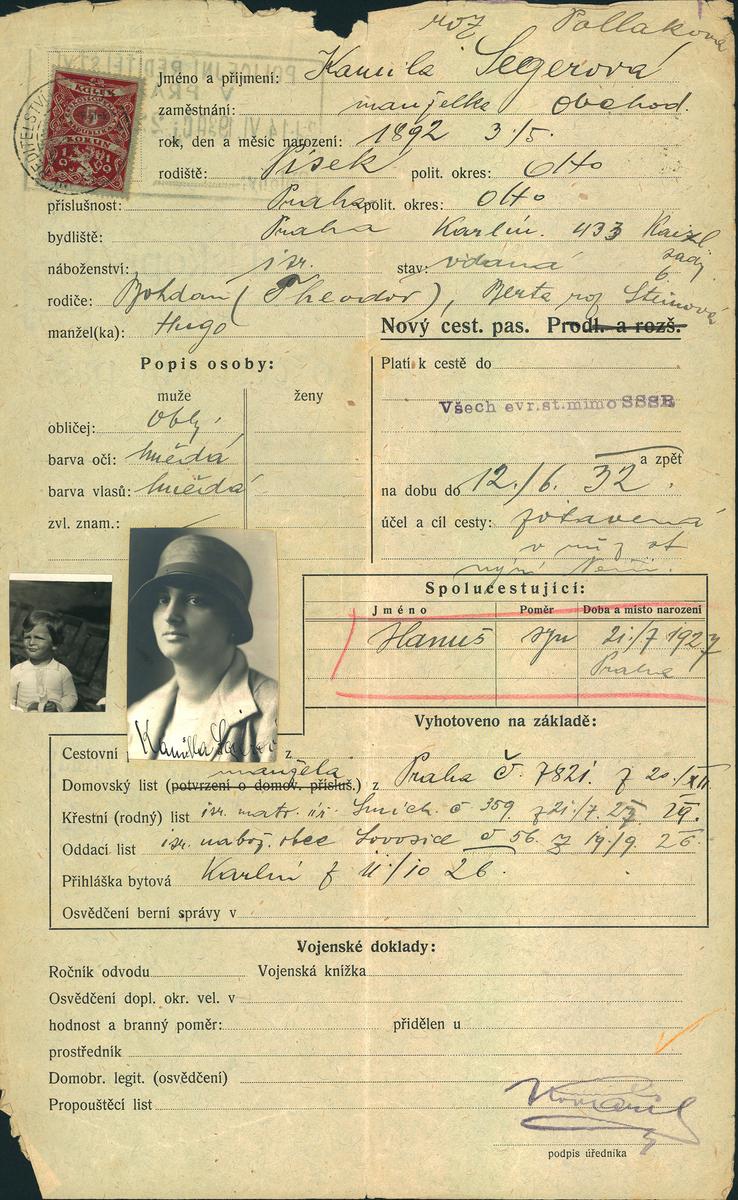 roz Pollakova
Jméno a příjmení: Kamila Segerová
zaměstnání: manželka obchod.
rok, den a měsíc narození: 1892 3./5.
rodiště: Písek polit. okres: otto
příslušnost: Praha polit. okres: otto
bydliště: Praha Karlín. 433 Kaizl
sady
6
náboženství: isr. stav: vdaná
rodiče: Bohdan (Theodor), Berta roz Steinová
manžel(ka): Hugo
Nový cest. pas. Prodl. a rozš.
Popis osoby:
muže ženy
obličej: oblý
barva očí: hnědá
barva vlasů: hnědá
zvl. znam.:
Platí k cestě do
Všech evr.st.mimo SSSR
a zpět
na dobu do 12./6. 32.
účel a cíl cesty: zotavená
v
nyní
Spolucestující:
Jméno Poměr Doba a místo narození
Hanuš syn 21./7 1927
Praha
Vyhotoveno na základě:
Cestovní z
manžela
Domovský list (potvrzení o domov. přísluš.) z Praha č. 7821. z 20./XII.
Křestní (rodný) list isr. matr. Smích. č 359. z 21./7. 27 29.
Oddací list isr. nabož. obce Lovosice č 56. z 19./9. 26.
Přihláška bytová Karlín z 11./10 26.
Osvědčení berní správy v
Vojenské doklady:
Ročník odvodu Vojenská knížka
Osvědčení dopl. okr. vel. v
hodnost a branný poměr: přidělen u
prostředník
Domobr. legit. (osvědčení)
Propouštěcí list
podpis úředníka